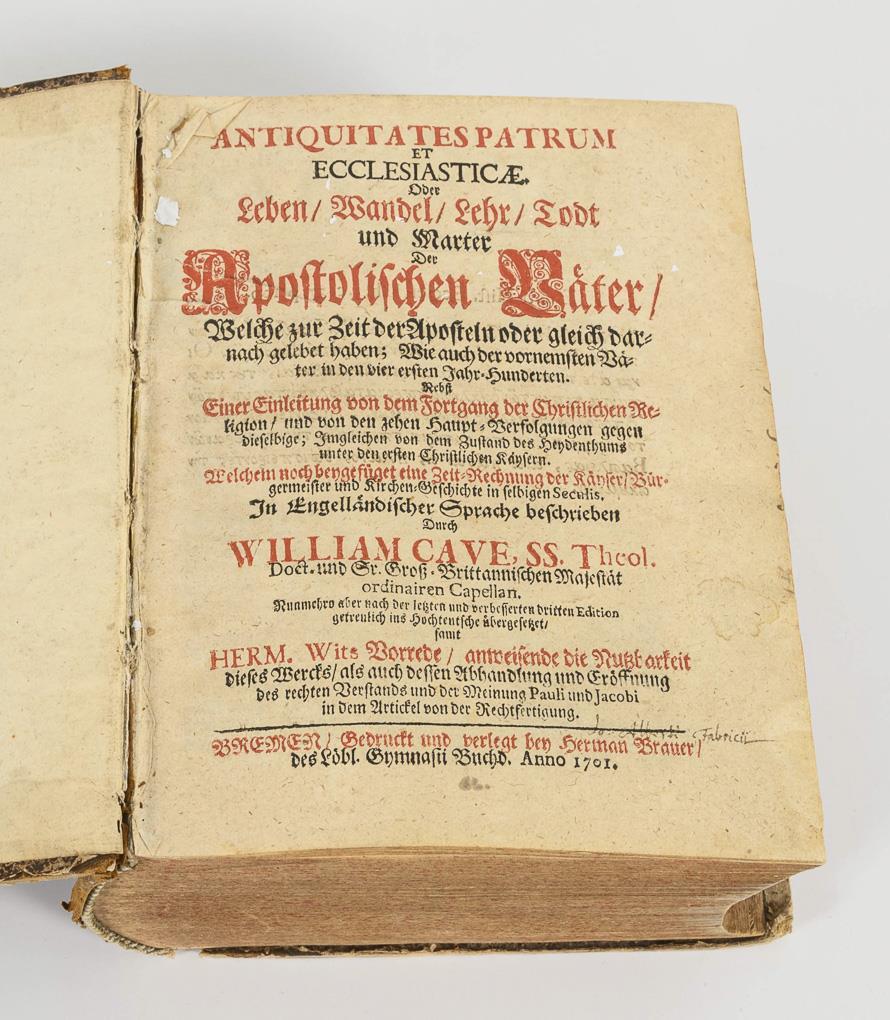 ANTIQUITATES PATRUM
ET
ECCLESIASTICÆ.
Oder
Leben/ Wandel/ Lehr/ Todt
und Marter
Der
Apostolischen Väter/
Welche zur Zeit der Aposteln oder gleich dar-
nach gelebet haben; Wie auch der vornemsten Vä-
ter in den vier ersten Jahr-Hunderten.
Nebst
Einer Einleitung von dem Fortgang der Christlichen Re-
ligion/ und von den zehen Haupt-Verfolgungen gegen
dieselbige; Imgleichen von dem Zustand des Heydenthums
unter den ersten Christlichen Käysern.
Welchem noch beygefüget eine Zeit-Rechnung der Käyser/ Bür-
germeister und Kirchen-Geschichte in selbigen Seculis.
In Engelländischer Sprache beschrieben
Durch
WILLIAM CAVE, SS. Theol.
Doct. und Sr. Groß-Brittannischen Majestät
ordinairen Capellan.
Nunmehro aber nach der letzten und verbesserten dritten Edition
getreulich ins Hochteutsche übergesetzet/
samt
HERM. Wits Vorrede/ anweisende die Nutzbarkeit
dieses Wercks/ als auch dessen Abhandlung und Eröffnung
des rechten Verstands und der Meinung Pauli und Jacobi
in dem Artickel von der Rechtfertigung.
Fabricii
BREMEN/ Gedruckt und verlegt bey Herman Brauer/
des Löbl. Gymnasii Buchd. Anno 1701.